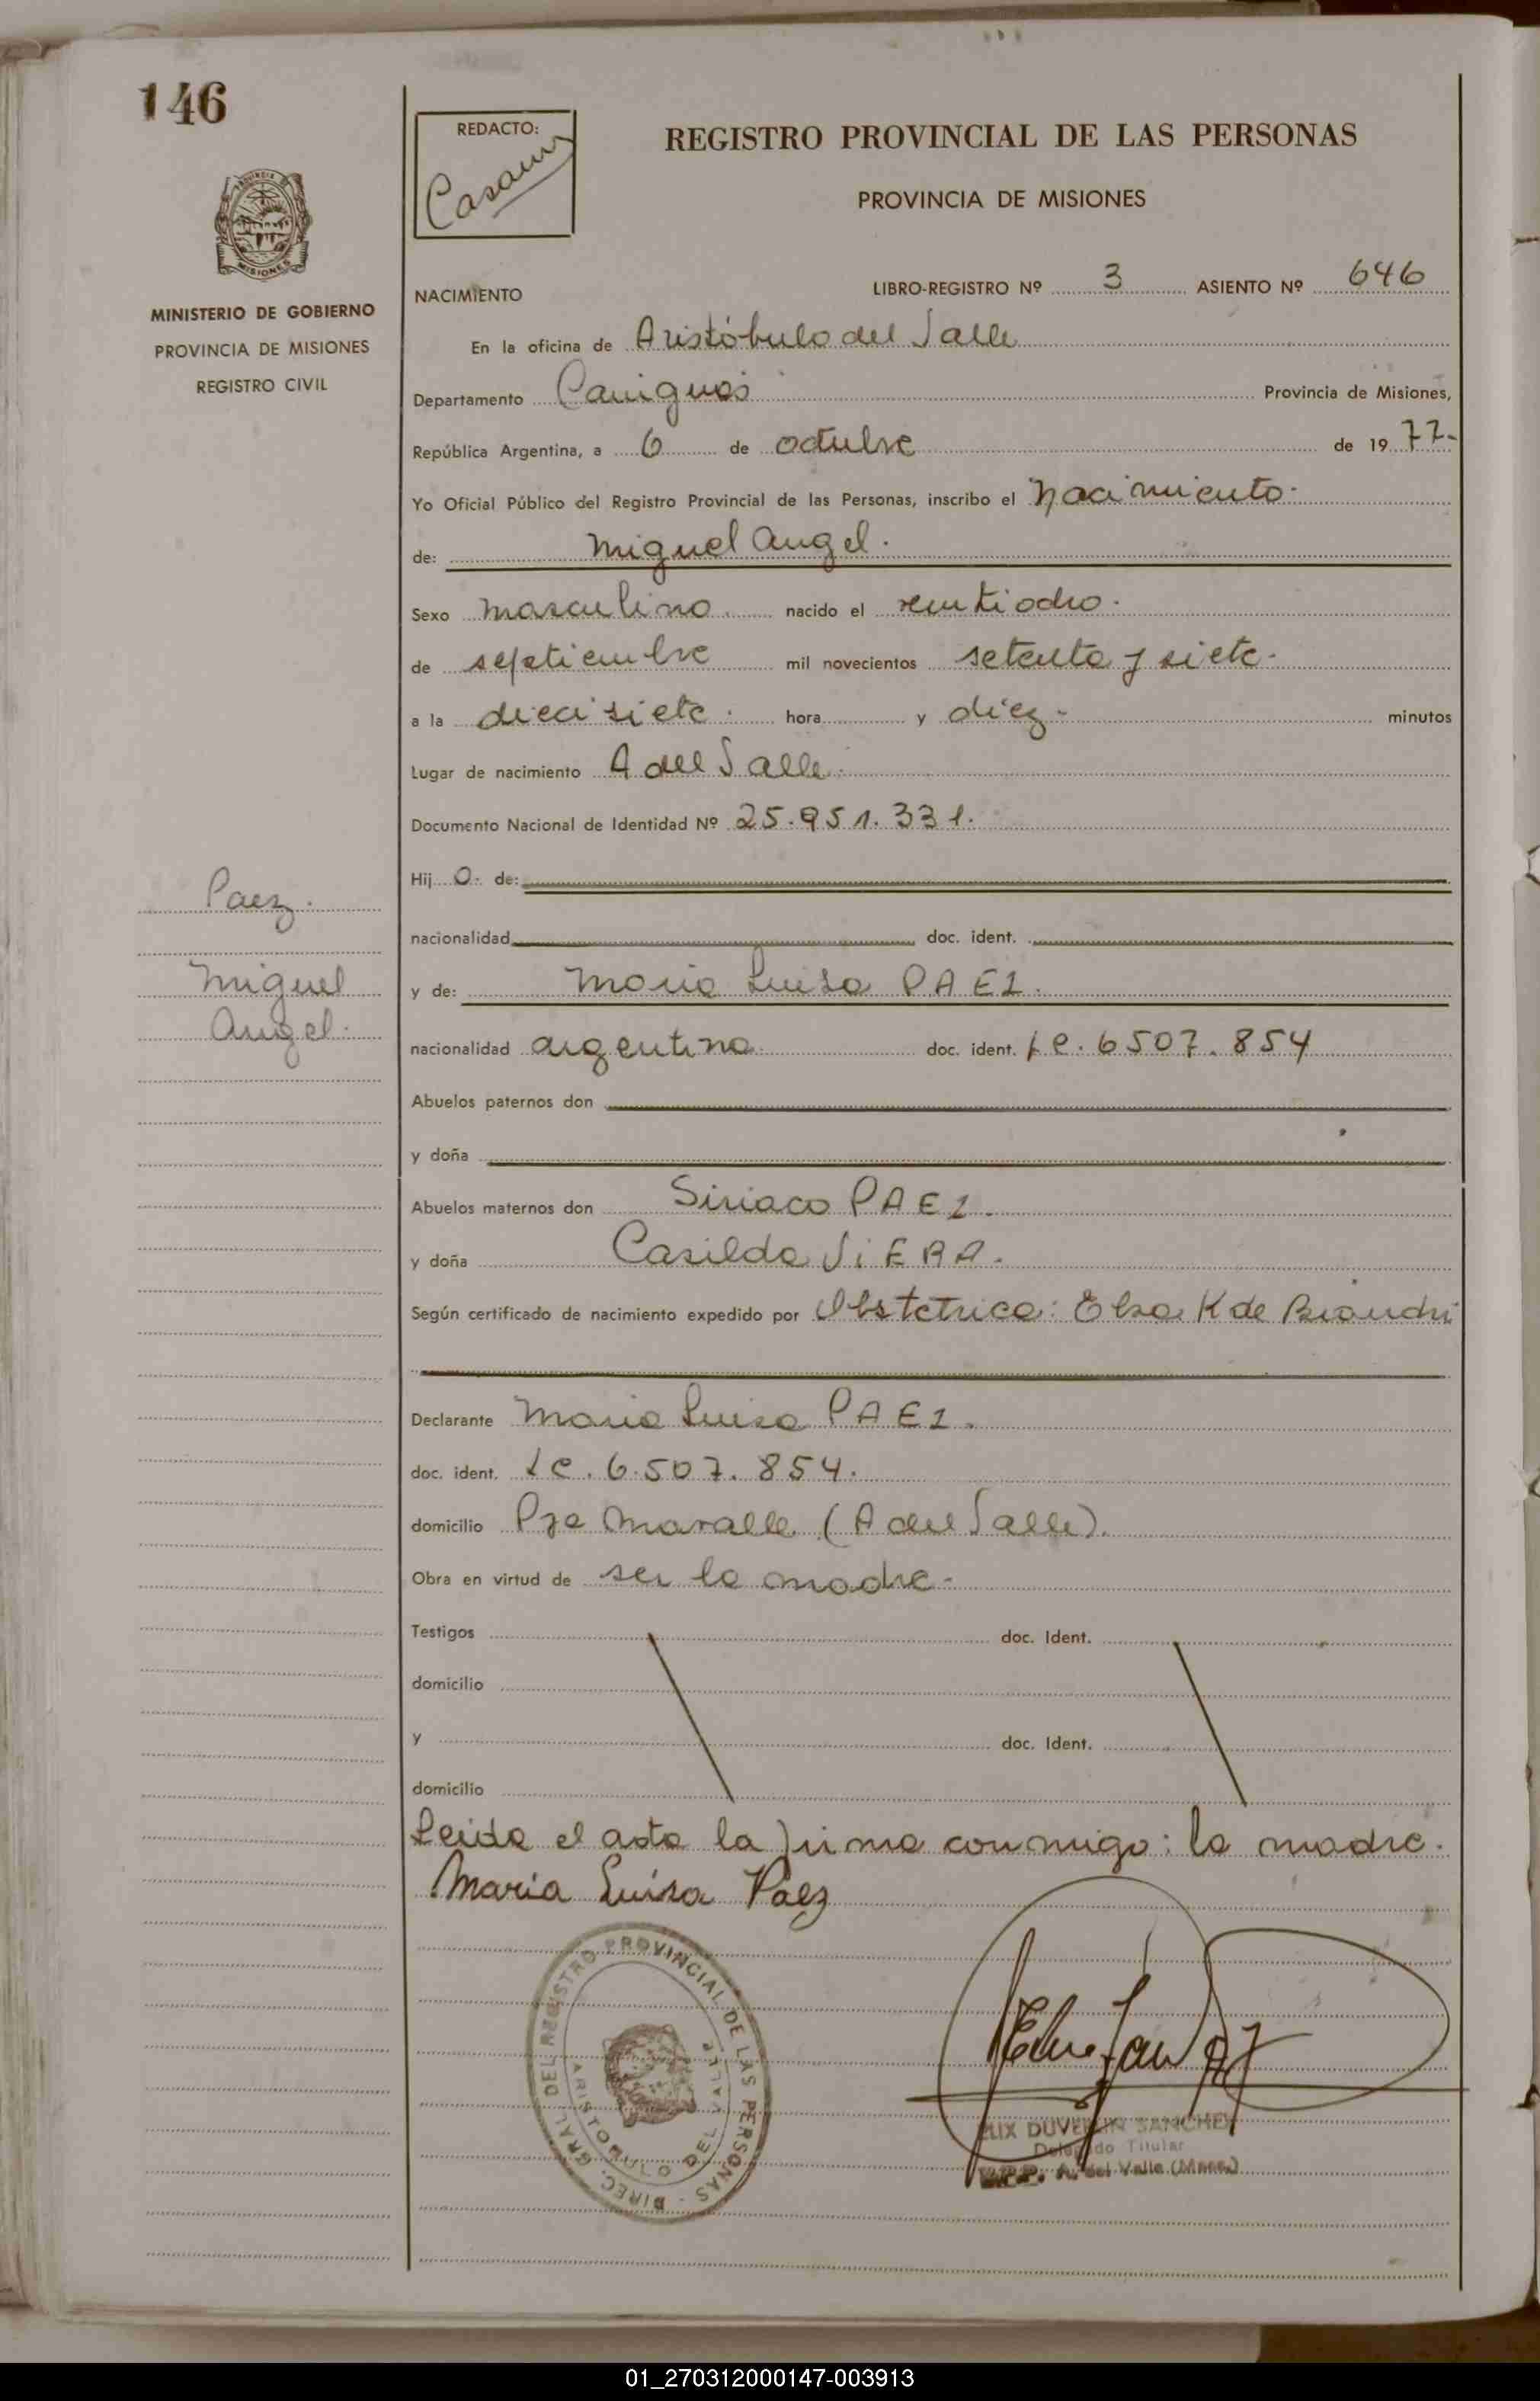 146
REDACTO:
REGISTRO PROVINCIAL DE LAS PERSONAS
PROVINCIA DE MISIONES
PROVINCIA DE
MISIONES
MINISTERIO DE GOBIERNO
PROVINCIA DE MISIONES
REGISTRO CIVIL
NACIMIENTO LIBRO-REGISTRO Nº 3 ASIENTO Nº 646
En la oficina de Aristóbulo del Valle
Departamento Cainguás Provincia de Misiones,
República Argentina, a 6 de octubre de 1977-
Yo Oficial Público del Registro Provincial de las Personas, inscribo el nacimiento.
de: Miguel Angel.
Sexo masculino. nacido el veintiocho.
de septiembre mil novecientos setenta y siete.
a la diecisiete. hora y diez- minutos
Lugar de nacimiento A del Valle.
Documento Nacional de Identidad Nº 25.951.331.
Hij o. de:
Paez.
nacionalidad doc. ident.
Miguel
y de: Maria Luisa PAEZ.
Angel.
nacionalidad argentina doc. ident. LC. 6507.854
Abuelos paternos don
y doña
Abuelos maternos don Siriaco PAEZ.
y doña Casilda ViERA.
Según certificado de nacimiento expedido por Obstetrica: Elsa K de
Declarante Maria Luisa PAEZ.
doc. ident. LC. 6.507.854.
domicilio (A del Valle).
Obra en virtud de ser la madre-
Testigos doc. Ident.
domicilio
y doc. Ident.
domicilio
Leida el acta la firma conmigo: la madre.
Maria Luisa Paez
DIREC. GRAL. DEL REGISTRO PROVINCIAL DE LAS PERSONAS -
ARISTOBULO DEL VALLE
SANCHEZ
Delegado Titular
A. del Valle (Mnes.)
01_270312000147-003913